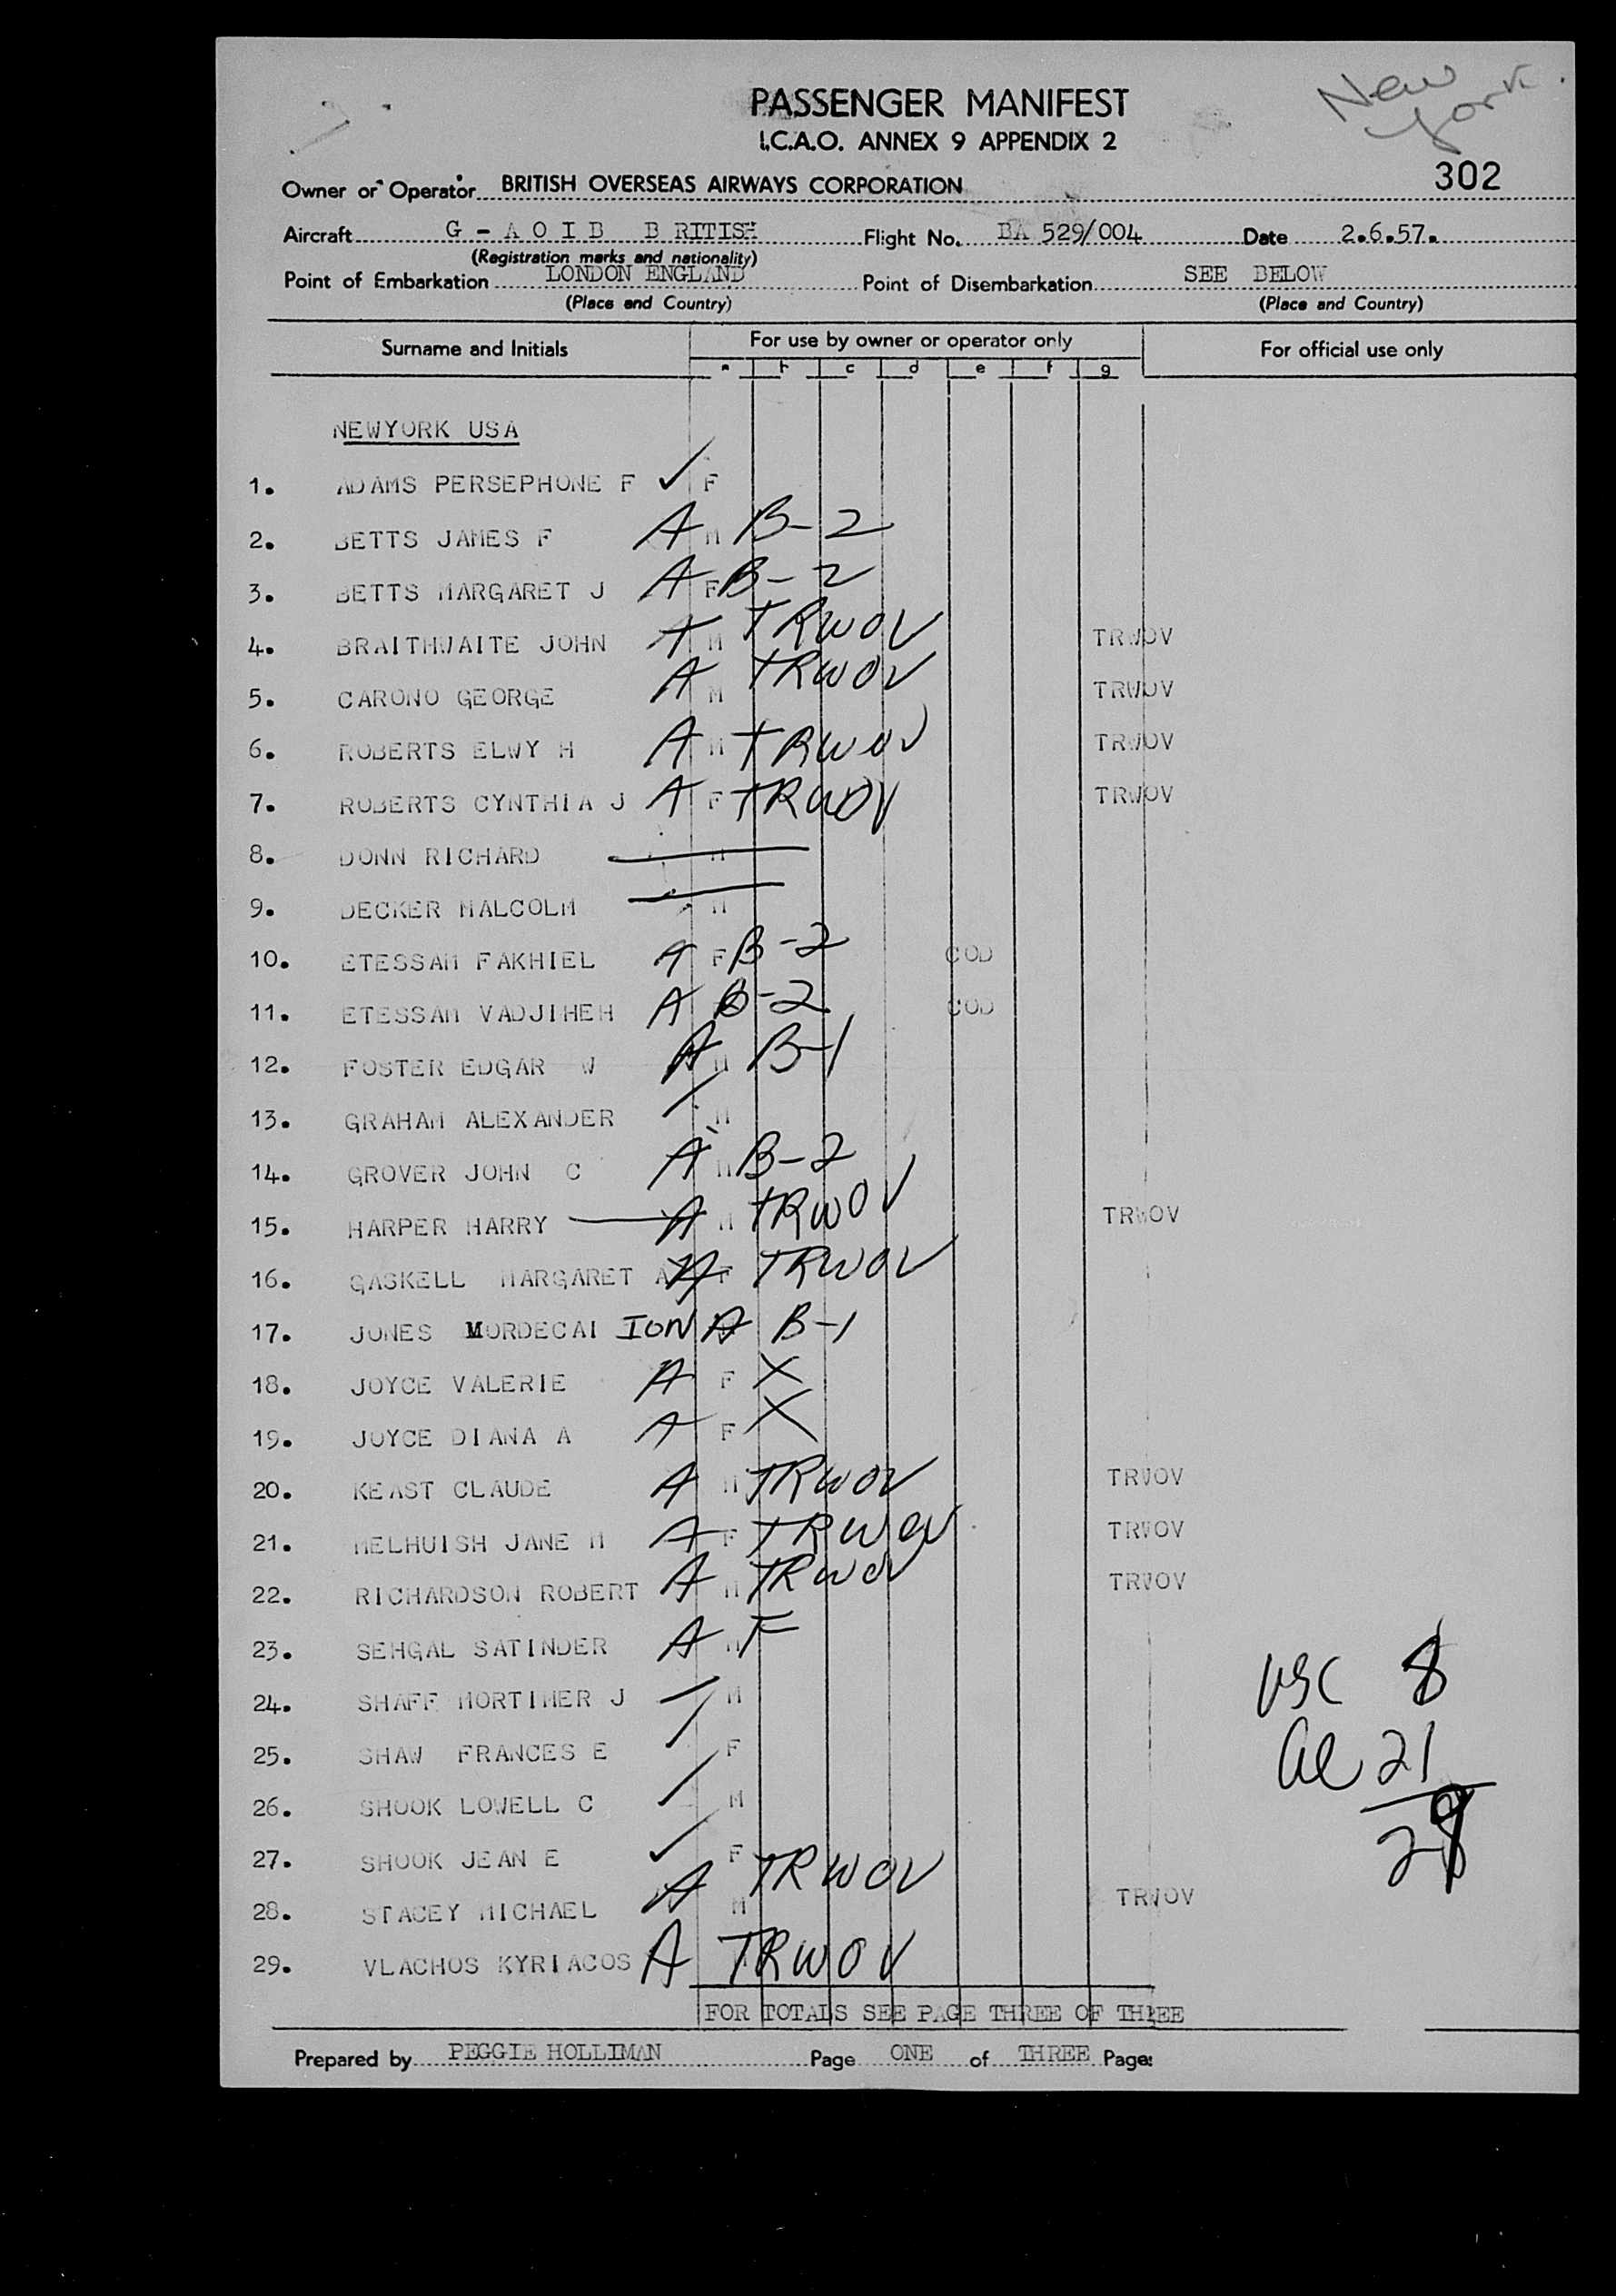 New York.
PASSENGER MANIFEST
I.C.A.O. ANNEX 9 APPENDIX 2
302
Owner or Operator BRITISH OVERSEAS AIRWAYS CORPORATION
Aircraft G - A O I B B RITISH Flight No. BA 529/004 Date 2.6.57.
(Registration marks and nationality)
Point of Embarkation LONDON ENGLAND Point of Disembarkation SEE BELOW
(Place and Country) (Place and Country)
Surname and Initials For use by owner or operator only For official use only
a b c d e f g
NEWYORK USA
1. ADAMS PERSEPHONE F ✓ F
2. BETTS JAMES F A M B-2
3. BETTS MARGARET J A F B-2
4. BRAITHWAITE JOHN A M TRWOV TRWOV
5. CARONO GEORGE A M TRWOV TRWOV
6. ROBERTS ELWY H A M TRWOV TRWOV
7. ROBERTS CYNTHIA J A F TRWOV TRWOV
8. DONN RICHARD M
9. DECKER MALCOLM M
10. ETESSAM FAKHIEL A F B-2 COD
11. ETESSAM VADJIHEH A B-2 COD
12. FOSTER EDGAR W A M B-1
13. GRAHAM ALEXANDER M
14. GROVER JOHN C A M B-2
15. HARPER HARRY A M TRWOV TRWOV
16. GASKELL MARGARET A A F TRWOV
17. JONES MORDECAI ION A B-1
18. JOYCE VALERIE A F X
19. JOYCE DIANA A A F X
20. KEAST CLAUDE A M TRWOV TRWOV
21. MELHUISH JANE M A F TRWOV TRWOV
22. RICHARDSON ROBERT A M TRWOV TRWOV
23. SEHGAL SATINDER A M F
24. SHAFF MORTIMER J M
USC 8
25. SHAW FRANCES E F
Al 21
26. SHOOK LOWELL C M
29
27. SHOOK JEAN E ✓ F
28. STACEY MICHAEL A M TRWOV TRWOV
29. VLACHOS KYRIACOS A TRWOV
FOR TOTALS SEE PAGE THREE OF THREE
Prepared by PEGGIE HOLLIMAN Page ONE of THREE Pages